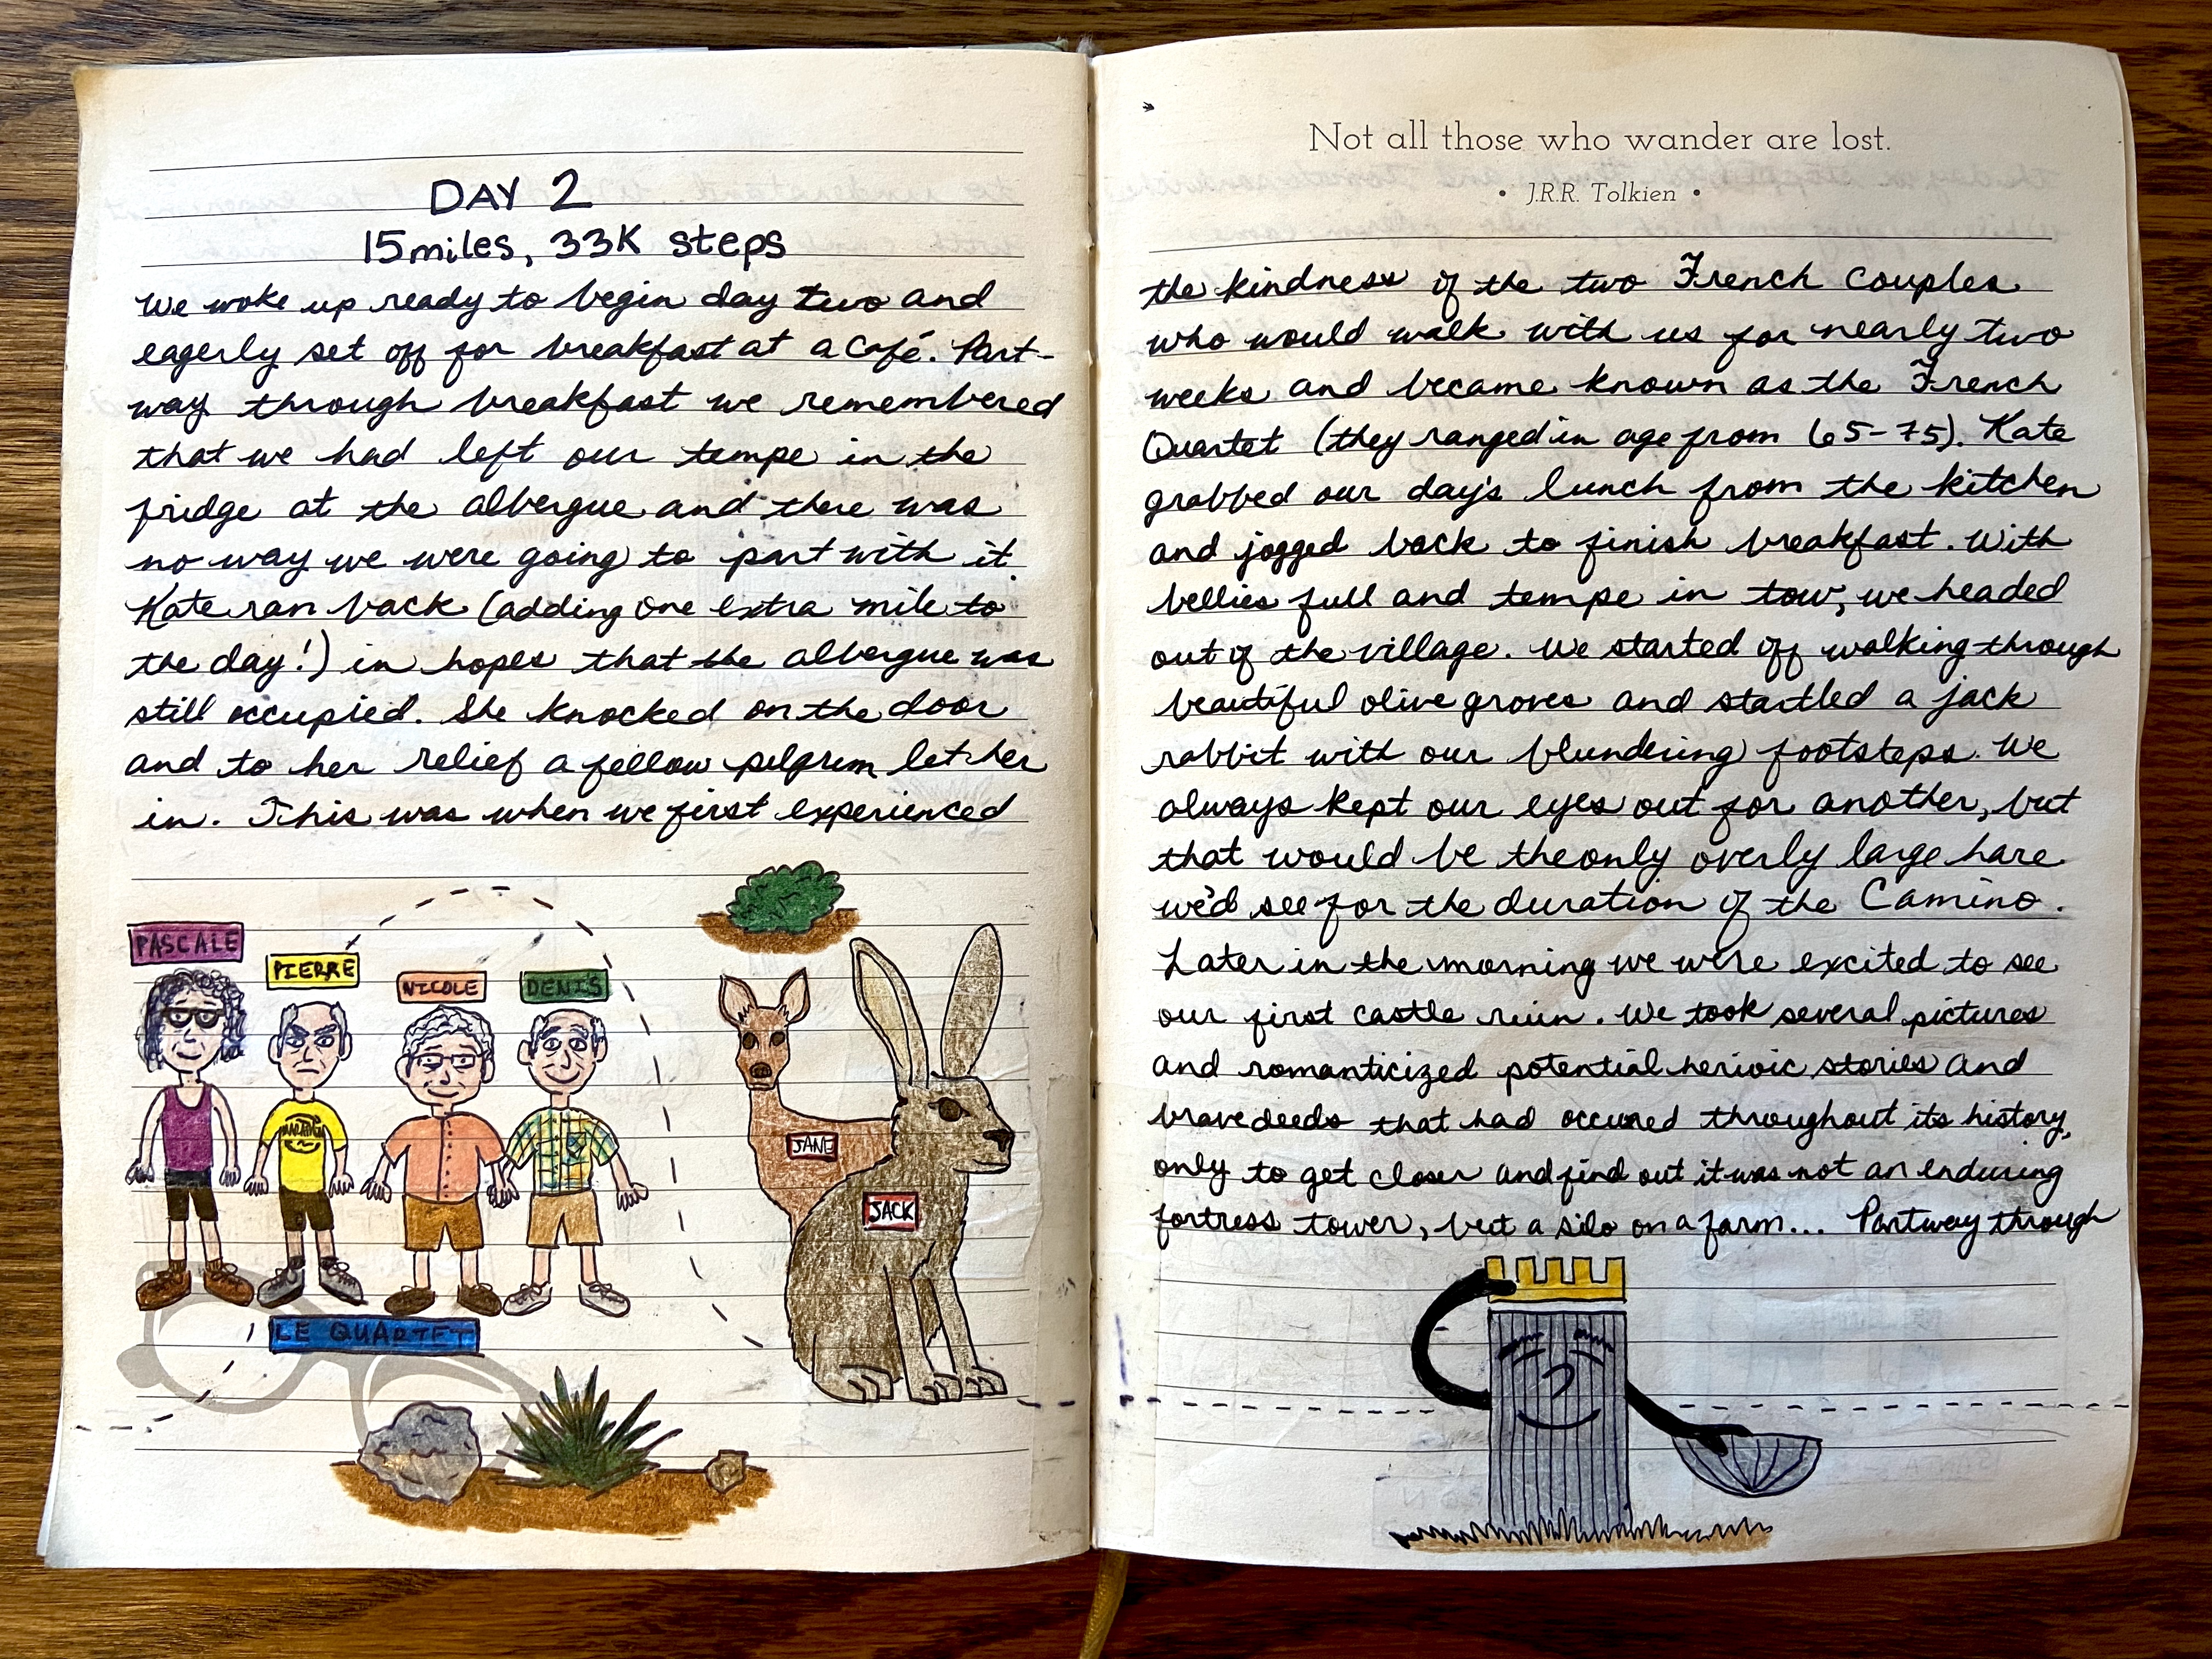 DAY 2
15miles, 33K steps
We woke up ready to begin day two and
eagerly set off for breakfast at a café. Part-
way through breakfast we remembered
that we had left our tempe in the
fridge at the albergue and there was
no way we were going to part with it.
Kate ran back (adding one extra mile to
the day!) in hopes that the albergue was
still occupied. She knocked on the door
and to her relief a fellow pilgrim let her
in. This was when we first experienced
PASCALE
PIERRE
NICOLE
DENIS
JANE
JACK
LE QUARTET
Not all those who wander are lost.
• J.R.R. Tolkien •
the kindness of the two French couples
who would walk with us for nearly two
weeks and became known as the French
Quartet (they ranged in age from 65-75). Kate
grabbed our day's lunch from the kitchen
and jogged back to finish breakfast. With
bellies full and tempe in tow, we headed
out of the village. We started off walking through
beautiful olive groves and startled a jack
rabbit with our blundering footsteps. We
always kept our eyes out for another, but
that would be the only overly large hare
we'd see for the duration of the Camino.
Later in the morning we were excited to see
our first castle ruin. We took several pictures
and romanticized potential heroic stories and
brave deeds that had occured throughout its history,
only to get closer and find out it was not an enduring
fortress tower, but a silo on a farm... Partway through